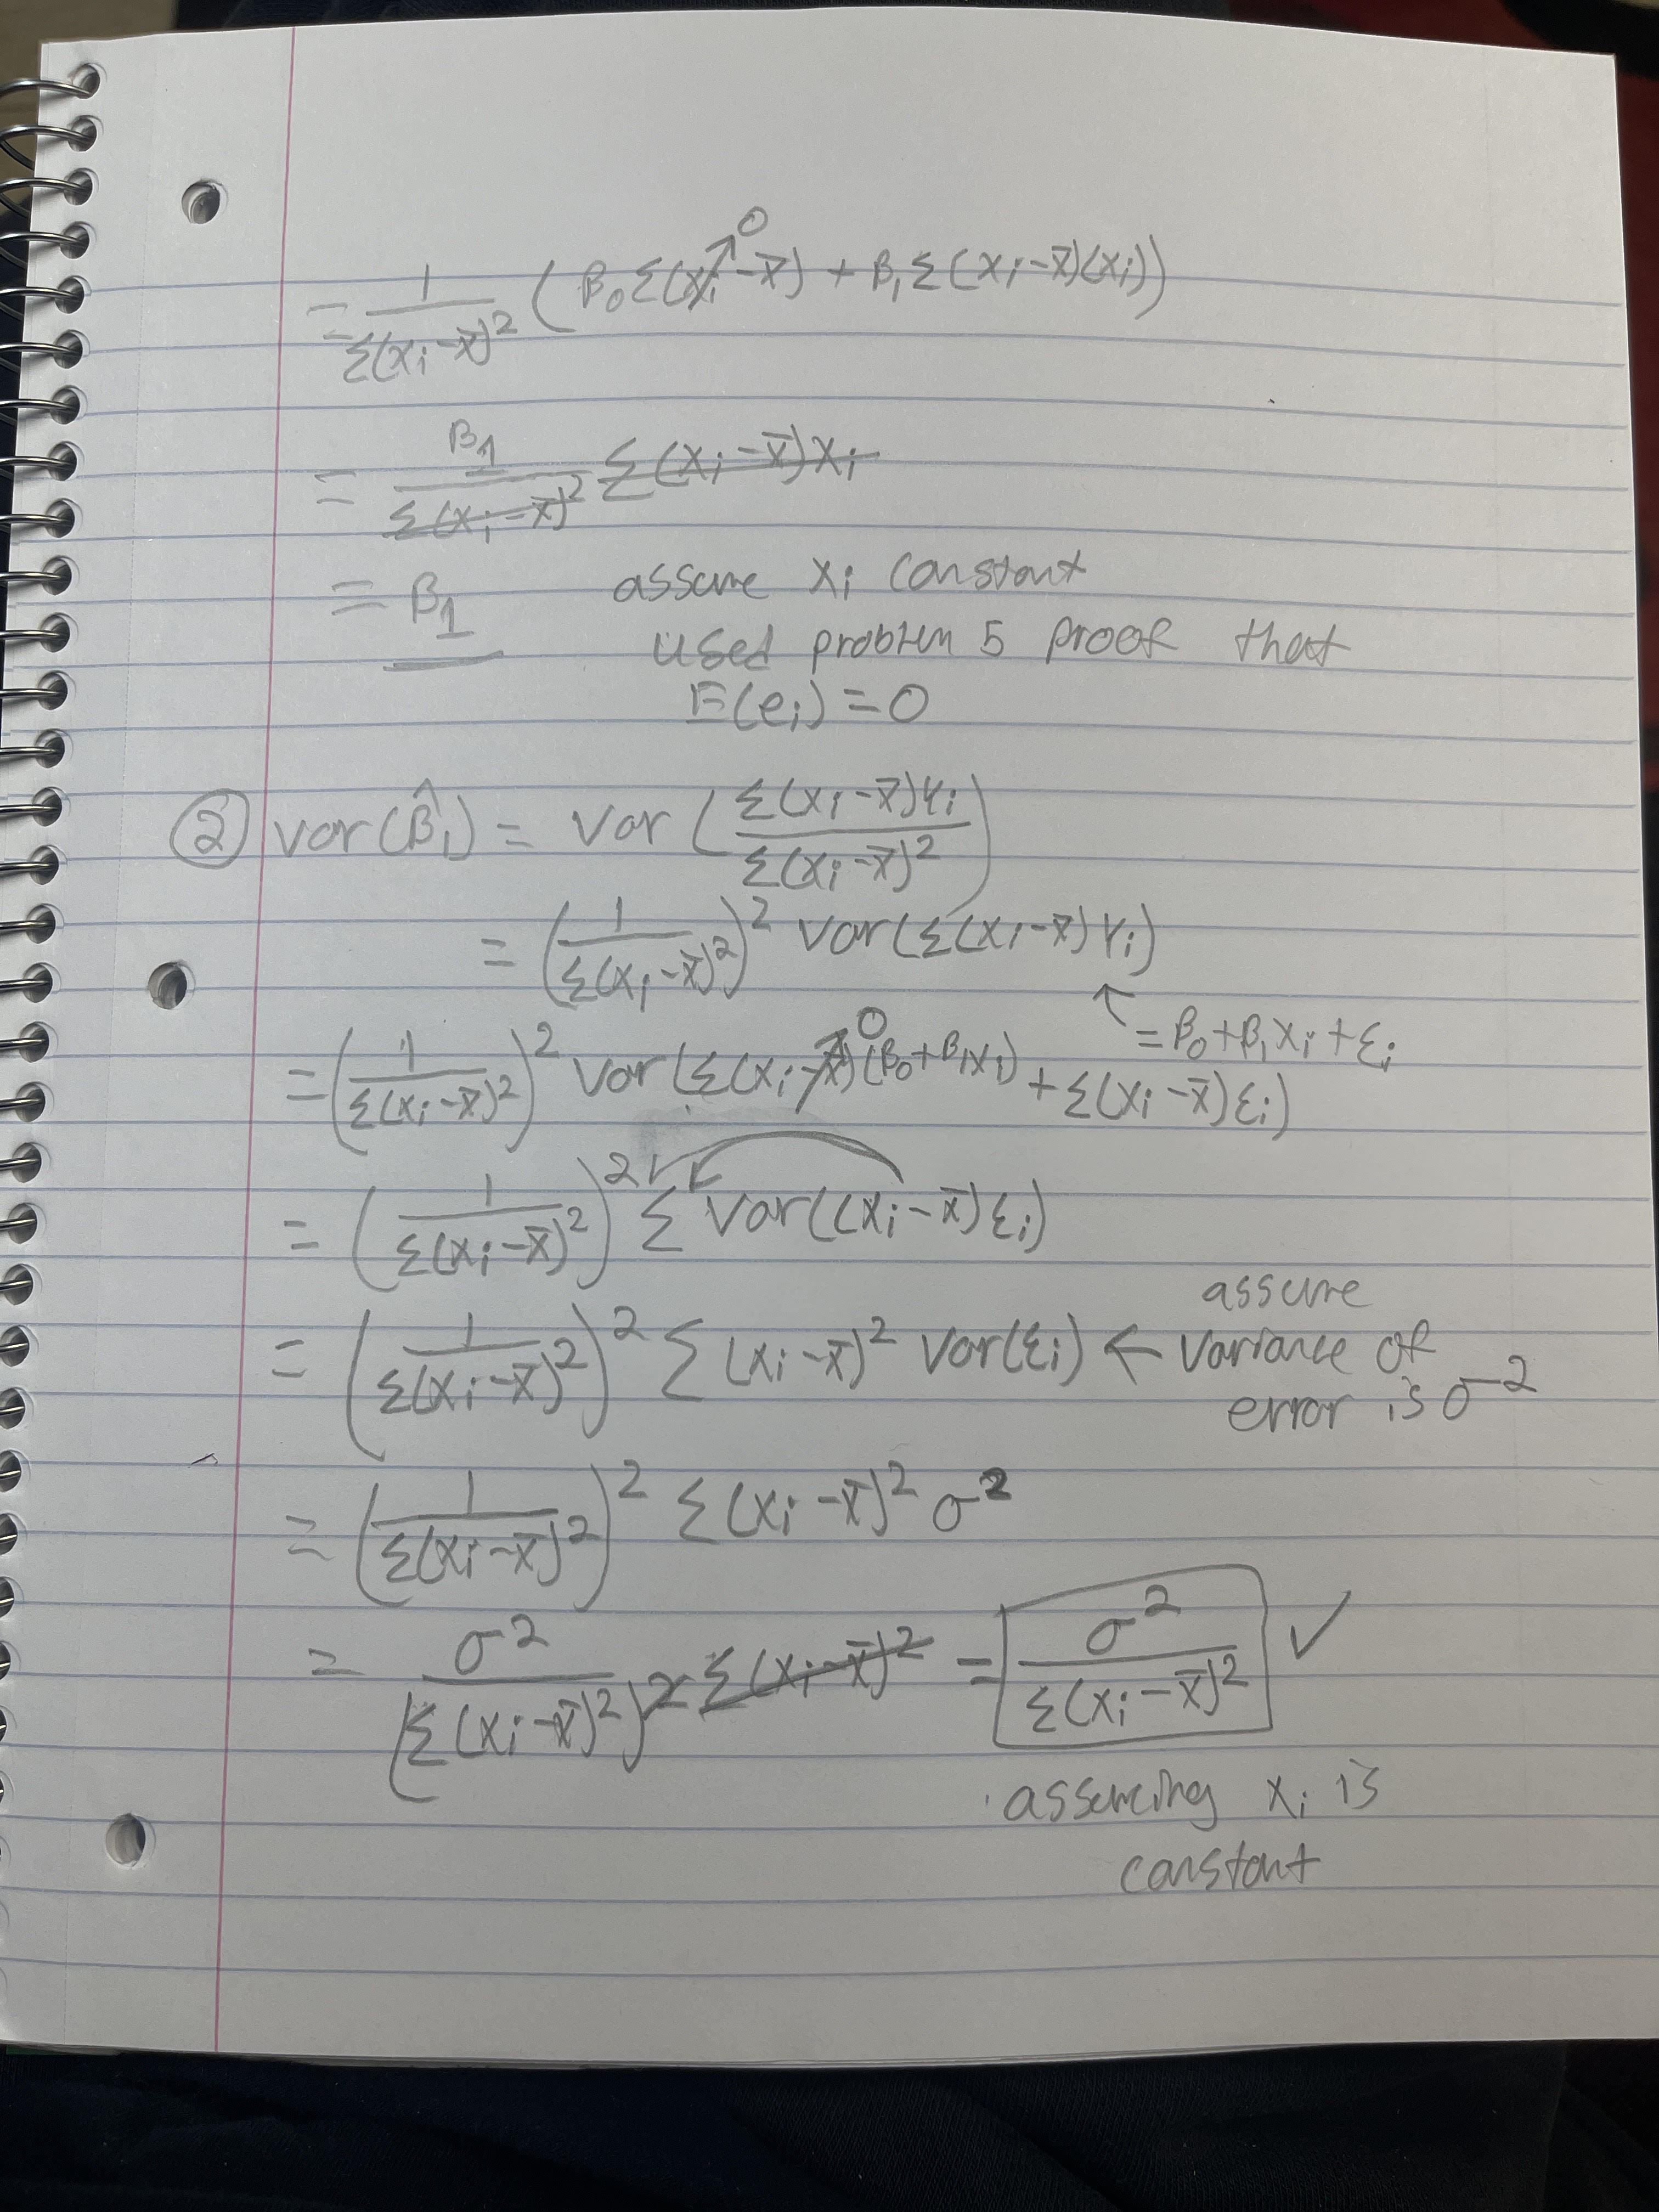 = 1/Σ(xᵢ-x̄)² (β₀Σ(xᵢ-x̄)↗0 + β₁Σ(xᵢ-x̄)(xᵢ))
= β₁/Σ(xᵢ-x̄)² Σ(xᵢ-x̄)xᵢ
= β₁ assume xᵢ constant
used problem 5 proof that
E(eᵢ)=0
② var(β̂₁) = Var(Σ(xᵢ-x̄)Yᵢ / Σ(xᵢ-x̄)²)
= (1/Σ(xᵢ-x̄)²)² Var(Σ(xᵢ-x̄)Yᵢ)
↖ = β₀+β₁xᵢ+εᵢ
= (1/Σ(xᵢ-x̄)²)² Var(Σ(xᵢ-x̄)(β₀+β₁xᵢ)↗0 + Σ(xᵢ-x̄)εᵢ)
= (1/Σ(xᵢ-x̄)²)² Σ Var((xᵢ-x̄)εᵢ)
= (1/Σ(xᵢ-x̄)²)² Σ (xᵢ-x̄)² Var(εᵢ) ← assume
variance of
error is σ²
= (1/Σ(xᵢ-x̄)²)² Σ(xᵢ-x̄)² σ²
= σ²/(Σ(xᵢ-x̄)²)² Σ(xᵢ-x̄)² = σ²/Σ(xᵢ-x̄)² ✓
assuming xᵢ is
constant